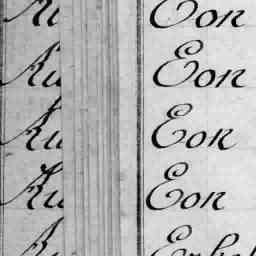 Ku Eon
Ku Eon
Ku Eon
Ku Eon